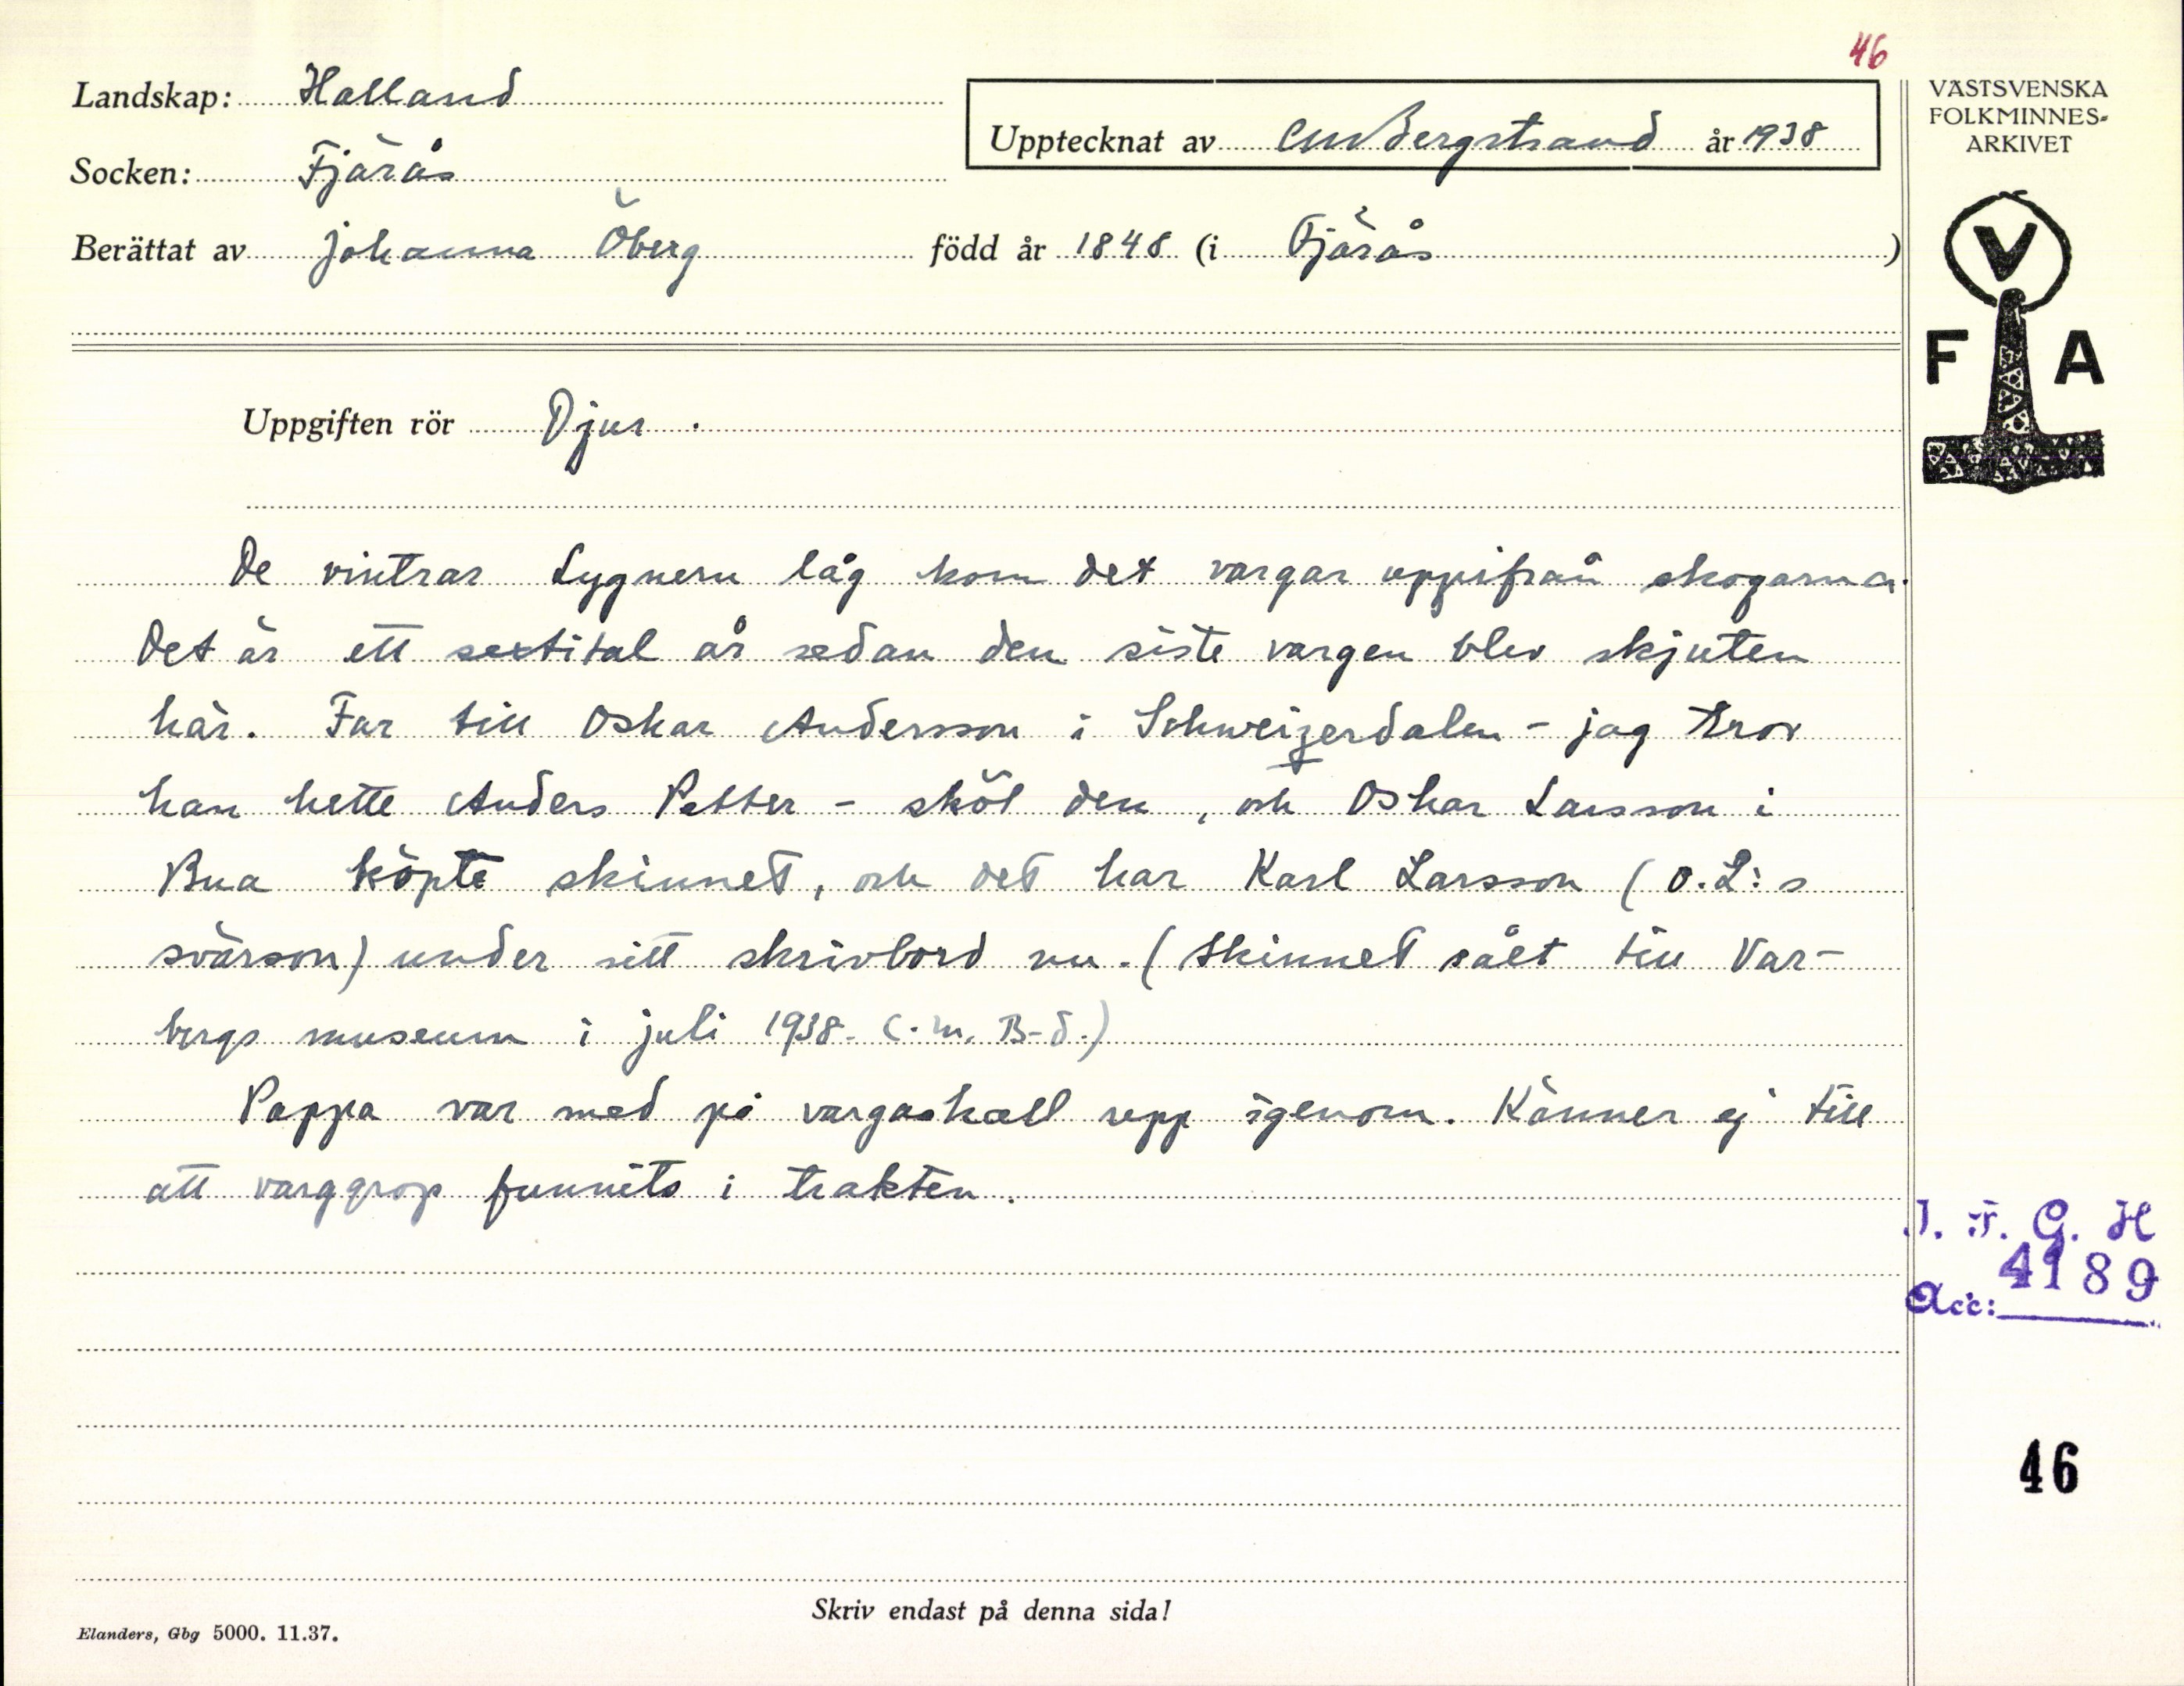 46
Landskap: Halland
Upptecknat av CMBergstrand år 1938
VÄSTSVENSKA
FOLKMINNES-
ARKIVET
Socken: Fjärås
Berättat av Johanna Öberg född år 1848 (i Fjärås )
V
F A
Uppgiften rör Djur.
De vintrar Lygnern låg kom det vargar uppifrån skogarna.
Det är ett sextital år sedan den siste vargen blev skjuten
här. Far till Oskar Andersson i Schweizerdalen - jag tror
han hette Anders Petter - sköt den, och Oskar Larsson i
Bua köpte skinnet, och det har Karl Larsson (O.L:s
svärson) under sitt skrivbord nu. (Skinnet sålt till Var-
bergs museum i juli 1938. C.M. B-d.)
Pappa var med på vargaskall upp igenom. Känner ej till
att varggrop funnits i trakten.
I. F. G. H
4189
Acc:
46
Skriv endast på denna sida!
Elanders, Gbg 5000. 11.37.